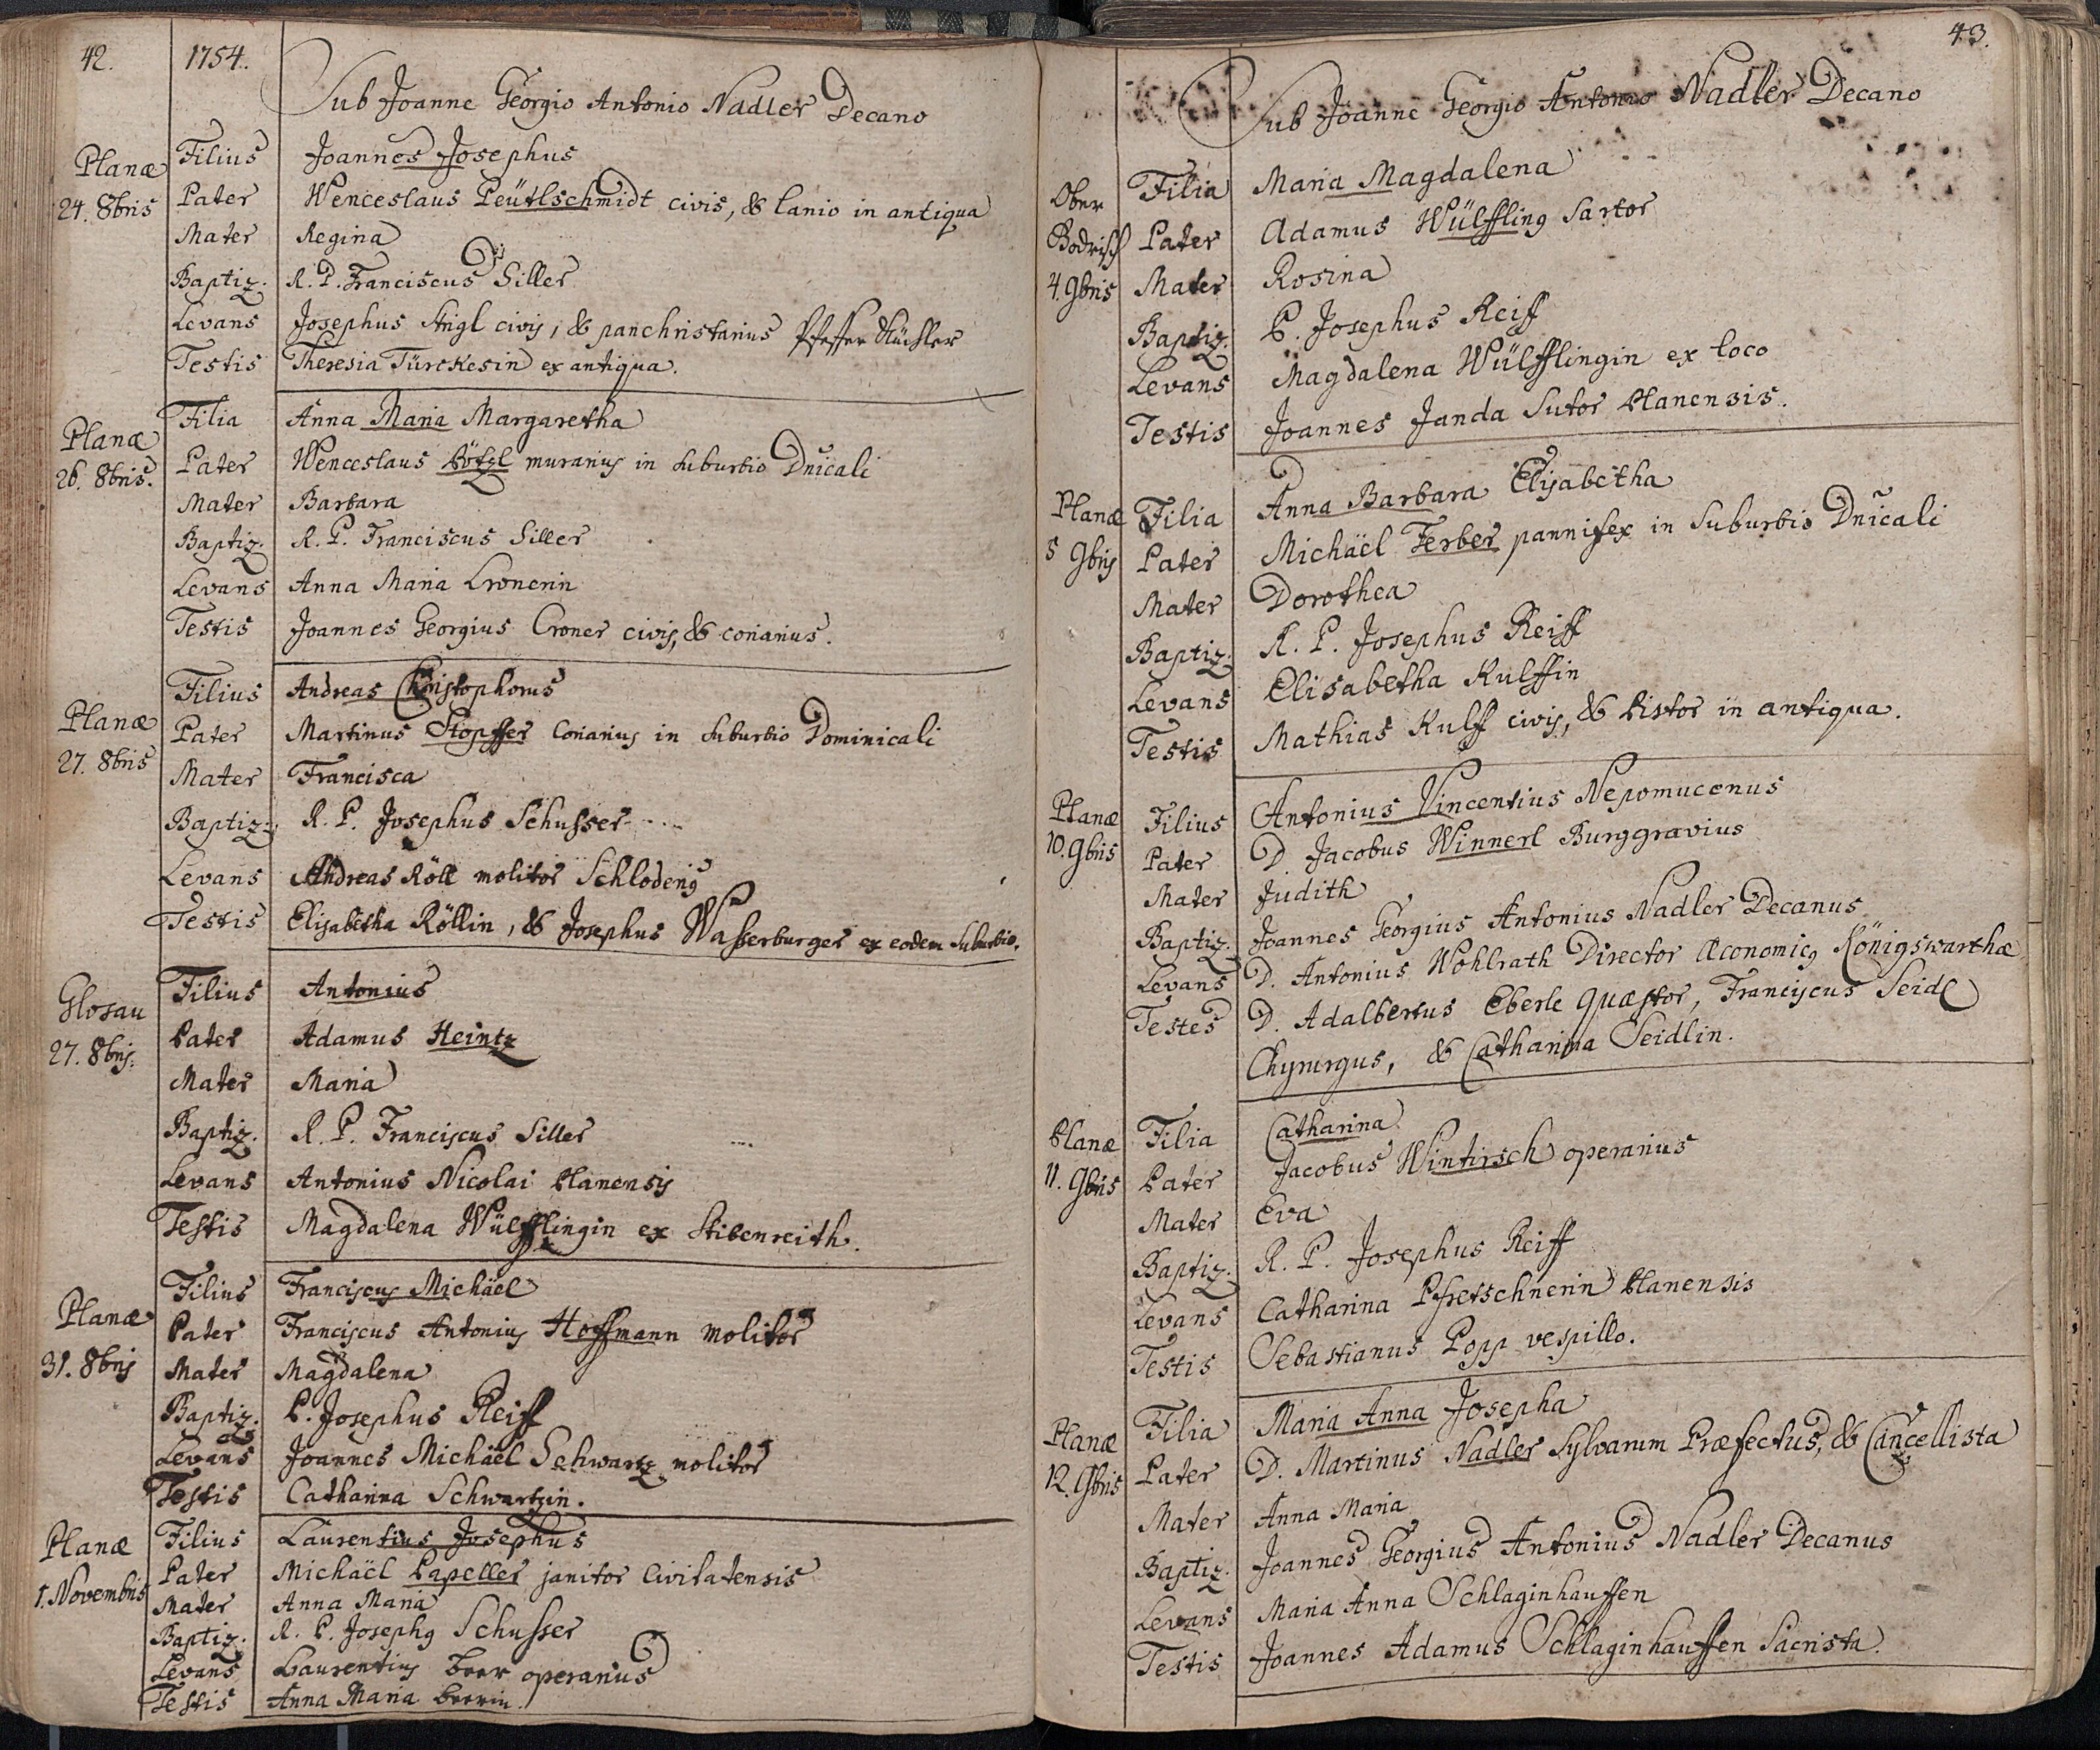 42. 1754.
Sub Joanne Georgio Antonio Nadler Decano
Planæ Filius Joannes Josephus
24. 8bris Pater Wenceslaus Peütlschmidt civis, & lanio in antiqua
Mater Regina
Baptiz. R. P. Franciscus Siller
Levans Josephus Stigl civis, & panchristarius
Testis Theresia Türckesin ex antiqua.
Planæ Filia Anna Maria Margaretha
26. 8bris. Pater Wenceslaus Pötzl murarius in suburbio Dnicali
Mater Barbara
Baptiz. R. P. Franciscus Siller
Levans Anna Maria Cronerin
Testis Joannes Georgius Croner civis, & coriarius.
Planæ Filius Andreas Christophorus
27. 8bris Pater Martinus Stopffer Coriarius in suburbio Dominicali
Mater Francisca
Baptiz. R. P. Josephus Schusser
Levans Andreas Röll molitor Schlodens
Testis Elisabetha Röllin, & Josephus Wasserburger ex eodem suburbio.
Glosau Filius Antonius
27. 8bris. Pater Adamus Heintz
Mater Maria
Baptiz. R. P. Franciscus Siller
Levans Antonius Nicolai Planensis
Testis Magdalena Wülfflingin ex Stibenreith.
Planæ Filius Franciscus Michäel
31. 8bris Pater Franciscus Antonius Hoffmann molitor
Mater Magdalena
Baptiz. P. Josephus Reiff
Levans Joannes Michäel Schwartz molitor
Testis Catharina Schwartzin.
Planæ Filius Laurentius Josephus
1. Novembris Pater Michäel Papeller janitor Civitatensis
Mater Anna Maria
Baptiz. R. P. Josephus Schusser
Levans Laurentius beer operarius
Testis Anna Maria beerin.
43.
Sub Joanne Georgio Antonio Nadler Decano
Ober Filia Maria Magdalena
Bodrisch Pater Adamus Wülffling Sartor
4. 9bris Mater Rosina
Baptiz. P. Josephus Reiff
Levans Magdalena Wülfflingin ex loco
Testis Joannes Janda Sutor Planensis.
Planæ Filia Anna Barbara Elisabetha
5 9bris Pater Michäel Ferber pannifex in Suburbio Dnicali
Mater Dorothea
Baptiz. R. P. Josephus Reiff
Levans Elisabetha Rulffin
Testis Mathias Rulff civis, & Pistor in antiqua.
Planæ Filius Antonius Vincentius Nepomucenus
10. 9bris Pater D Jacobus Winnerl Burggravius
Mater Judith
Baptiz. Joannes Georgius Antonius Nadler Decanus
Levans D. Antonius Wohlrath Director Œconomicq Königswarthæ
Testes D. Adalbertus Eberle Quæstor, Franciscus Seidl
Chyrurgus, & Catharina Seidlin.
Planæ Filia Catharina
11. 9bris Pater Jacobus Wintirsch operarius
Mater Eva
Baptiz. R. P. Josephus Reiff
Levans Catharina Pfretschnerin Planensis
Testis Sebastianus Popp vespillo.
Planæ Filia Maria Anna Josepha
12. 9bris Pater D. Martinus Nadler Sylvarum Præfectus, & Cancellista
Mater Anna Maria
Baptiz. Joannes Georgius Antonius Nadler Decanus
Levans Maria Anna Schlaginhauffen
Testis Joannes Adamus Schlaginhauffen Sacrista.